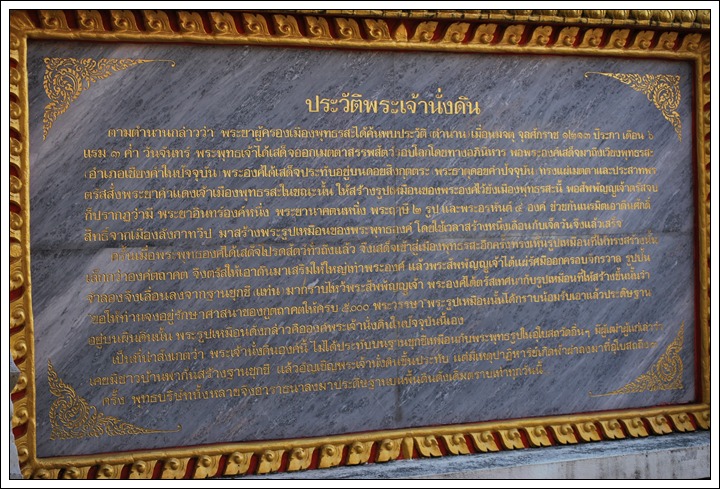 ประวัติพระเจ้านั่งดิน
ตามตำนานกล่าวว่า พระยาผู้ครองเมืองพุทธรสะได้ค้นพบประวัติ (ตำนาน) เมื่อนมจตุ จุลศักราช ๑๒๑๓ ปีระกา เดือน ๖
แรม ๓ ค่ำ วันจันทร์ พระพุทธเจ้าได้เสด็จออกเมตตาสรรพสัตว์รอบโลกโดยทางอภินิหาร พอพระองค์เสด็จมาถึงเวียงพุทธรสะ
(อำเภอเชียงคำในปัจจุบัน) พระองค์ได้เสด็จประทับอยู่บนดอยสิงกุตตระ (พระธาตุดอยคำปัจจุบัน) ทรงแผ่เมตตาและประสาทพร
ตรัสสั่งพระยาคำแดงเจ้าเมืองพุทธรสะในขณะนั้น ให้สร้างรูปเหมือนของพระองค์ไว้ยังเมืองพุทธรสะนี้ พอสัพพัญญูเจ้าตรัสจบ
ก็ปรากฏว่ามี พระยาอินทร์องค์หนึ่ง พระยานาคตนหนึ่ง พระฤๅษี ๒ รูป และพระอรหันต์ ๔ องค์ ช่วยกันเนรมิตเอาดินศักดิ์
สิทธิ์จากเมืองลังกาทวีป มาสร้างพระรูปเหมือนของพระพุทธองค์ โดยใช้เวลาสร้างหนึ่งเดือนกับเจ็ดวันจึงแล้วเสร็จ
ครั้นเมื่อพระพุทธองค์ได้เสด็จโปรดสัตว์ทั่วถึงแล้ว จึงเสด็จเข้าสู่เมืองพุทธรสะอีกครั้งทรงเห็นรูปเหมือนที่ให้ทรงสร้างนั้น
เล็กกว่าองค์ตถาคต จึงตรัสให้เอาดินมาเสริมให้ใหญ่เท่าพระองค์ แล้วพระสัพพัญญูเจ้าได้แผ่รัศมีออกครอบจักรวาล รูปปั้น
จำลองจึงเลื่อนลงจากฐานชุกชี (แท่น) มากราบไหว้พระสัพพัญญูเจ้า พระองค์ได้ตรัสเทศนากับรูปเหมือนที่ให้สร้างขึ้นนั้นว่า
"ขอให้ท่านจงอยู่รักษาศาสนาของกูตถาคตให้ครบ ๕,๐๐๐ พระวรรษา" พระรูปเหมือนนั้นได้กราบน้อมรับเอาแล้วประดิษฐาน
อยู่บนผืนดินนั้น พระรูปเหมือนดังกล่าวคือองค์พระเจ้านั่งดินในปัจจุบันนี้เอง
เป็นที่น่าสังเกตว่า พระเจ้านั่งดินองค์นี้ ไม่ได้ประทับบนฐานชุกชีเหมือนกับพระพุทธรูปในอุโบสถวัดอื่นๆ มีผู้เฒ่าผู้แก่เล่าว่า
เคยมีชาวบ้านพากันสร้างฐานชุกชี แล้วอัญเชิญพระเจ้านั่งดินขึ้นประทับ แต่มีเหตุปาฏิหาริย์เกิดฟ้าผ่าลงมาที่อุโบสถถึง ๓
ครั้ง พุทธบริษัททั้งหลายจึงอาราธนาลงมาประดิษฐานบนพื้นดินดังเดิมตราบเท่าทุกวันนี้